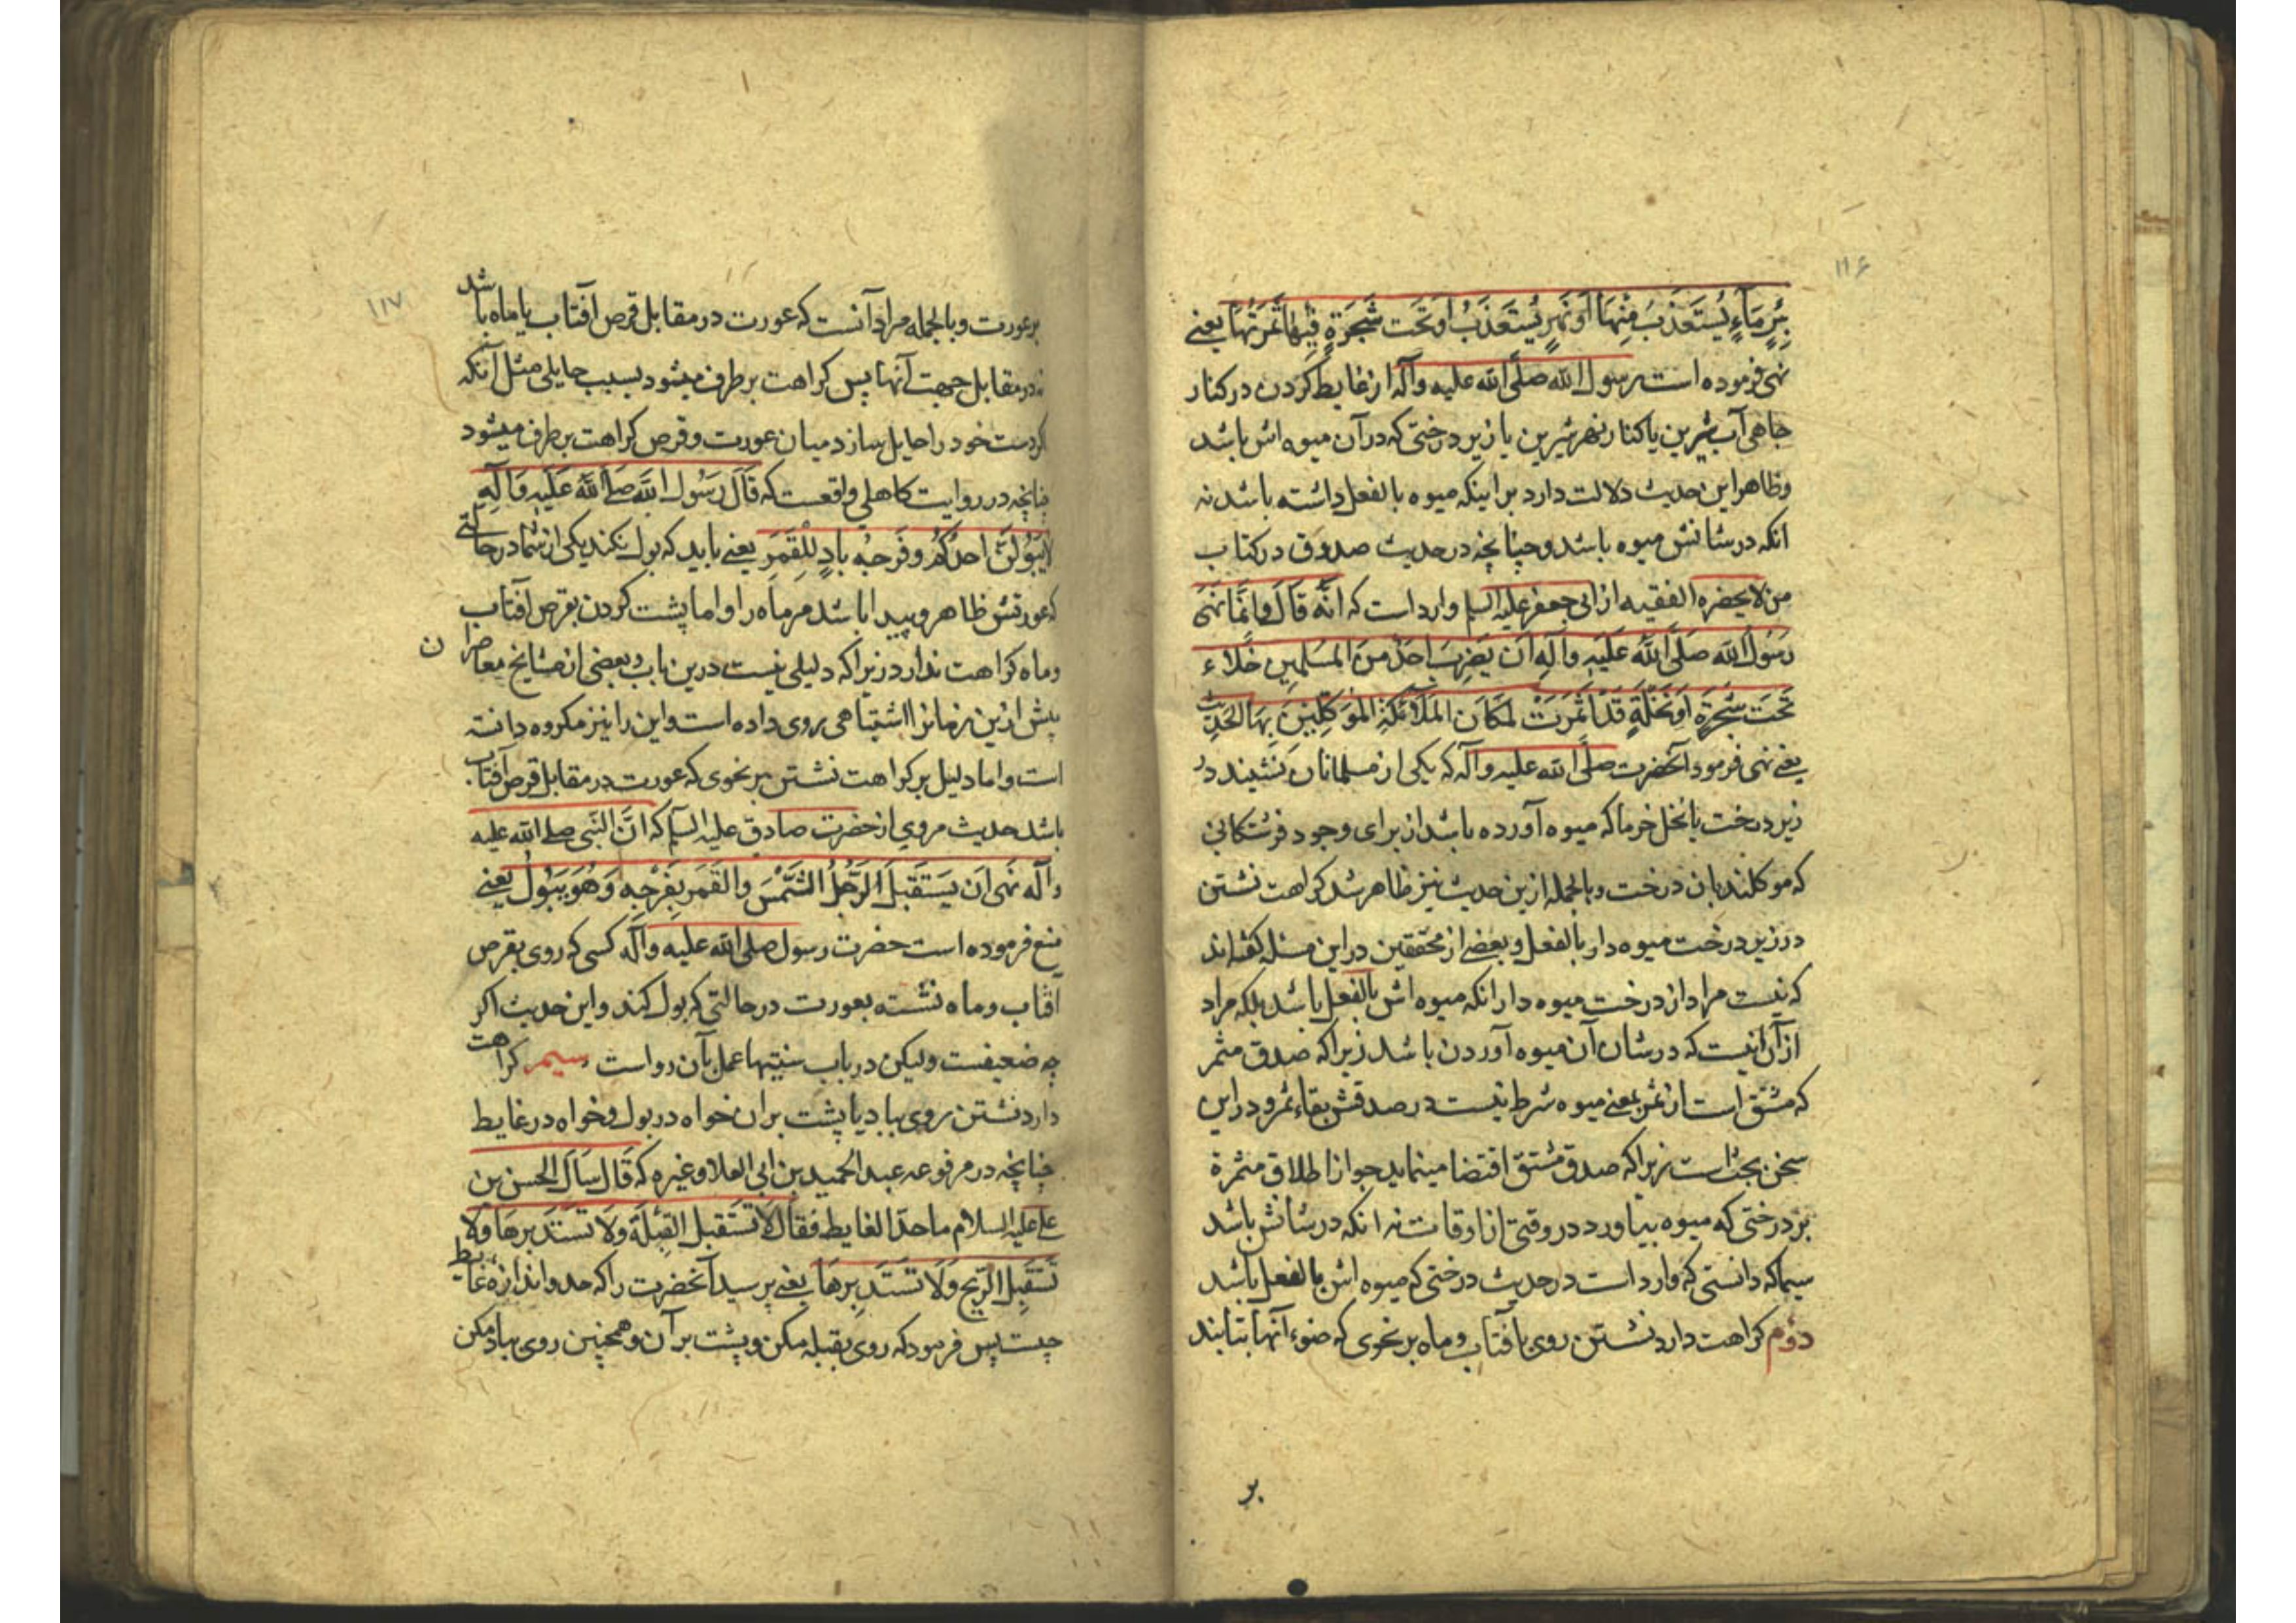 ۱۱۶
بِئْرِ مَاءٍ يُسْتَعْذَبُ مِنْهَا أَوْ نَهْرٍ يُسْتَعْذَبُ أَوْ تَحْتَ شَجَرَةٍ فِيهَا ثَمَرَتُهَا يعنے
نهی فرموده است رسول الله صلّی الله علیه وآله از غایط کردن در کنار
چاهی آب شیرین یا کنار نهر شیرین یا زیر درختی که در آن میوه اش باشد
وظاهر این حدیث دلالت دارد بر اینکه میوه بالفعل داشته باشد نه
انکه در شانش میوه باشد و چنانچه در حدیث صدوق در کتاب
من لا یحضره الفقیه از ابی جعفر علیه السلم وارد است که انّه قَالَ وَانَّمَا نَهَى
رَسُولُ اللهِ صَلَّى اللهُ عَلَيْهِ وآلِهِ ان يَضْرِبَ احَدٌ مِنَ المُسْلِمِينَ خَلَاءً
تَحْتَ شَجَرَةٍ اَوْ نَخْلَةٍ قَدْ اَثْمَرَتْ لِمَكَانِ المَلَائِكَةِ المُوَكَّلِينَ بِهَا الحَدِيث
یعنے نهی فرمود آنحضرت صلّی الله علیه وآله که یکی از مسلمانان بنشیند در
زیر درخت یا نخل خرما که میوه آورده باشد از برای وجود فرشتکانی
که موکلند بان درخت و بالجمله ازین حدیث نیز ظاهر شد کراهت نشستن
در زیر درخت میوه دار بالفعل و بعضے از محققین در این مسئله گفته‌اند
که نیست مراد از درخت میوه دار انکه میوه اش بالفعل باشد بلکه مراد
از آن اینست که در شان آن میوه آوردن باشد زیرا که صدق مثمر
که مشتق است از ثمر بمعنے میوه شرط نیست در صدقش بقاء ثمر و در این
سخن بحث است زیرا که صدق مشتق اقتضا مینماید جواز اطلاق مثمرة
بر درختی که میوه بیاورد در وقتی از اوقات نه انکه در شانش باشد
سیما که دانستی که وارد است در حدیث درختی که میوه اش بالفعل باشد
دوّم کراهت دارد نشستن روی بافتاب و ماه بر نحوی که ضوء آنها بتابند
بر
۱۱۷
بر عورت و بالجمله مراد آنست که عورت در مقابل قرص آفتاب یا ماه باشد
نه در مقابل جهت آنها پس کراهت بر طرف میشود بسبب حایلی مثل آنکه
کردست خود را حایل سازد میان عورت و قرص کراهت بر طرف میشود
چنانچه در روایت کاهلی واقعست که قَالَ رَسُولُ اللهِ صلے اللهُ عَلَيْهِ وَآلِهِ
لَا يَبُولَنَّ احَدُكُمْ وفَرْجُهُ بادٍ لِلْقَمَرِ یعنے باید که بول نکند یکی از شما در حالتے
که عورتش ظاهر و پیدا باشد مر ماه را و اما پشت کردن بقرص آفتاب
وماه کراهت ندارد زیرا که دلیلی نیست درین باب و بعضی از مشایخ معاصران
پیش ازین زمان را اشتباهی روی داده است و این را نیز مکروه دانسته
است و اما دلیل بر کراهت نشستن بر نحوی که عورت در مقابل قرص آفتاب
باشد حدیث مروی از حضرت صادق علیه السلم که انَّ النَّبی صلے الله علیه
وآله نَهى اَن يَسْتَقْبِلَ الرَّجُلُ الشَّمْسَ والقَمَرَ بِفَرْجِهِ وَهُوَ يَبُولُ یعنے
منع فرموده است حضرت رسول صلی الله علیه وآله کسی که روی بقرص
افتاب و ماه نشسته بعورت در حالتی که بول کند و این حدیث اکر
چه ضعیفست ولیکن در باب سنتیها عمل بآن رواست سیم کراهت
دارد نشستن روی بباد یا پشت بران خواه در بول و خواه در غایط
چنانچه در مرفوعه عبد الحمید بن ابی العلا و غیره که قَالَ سَأَلَ الحسن بن
علے علیه السلام ما حدّ الغایط فقالَ لَا تَسْتَقْبِلِ القِبْلَةَ وَلَا تَسْتَدْبِرْهَا وَلَا
تَسْتَقْبِلِ الرِّيحَ وَلَا تَسْتَدْبِرْهَا یعنے پرسید آنحضرت را که حد و اندازهٔ غایط
چیست پس فرمود که روی بقبله مکن و پشت بر آن و همچنین روی بباد مکن